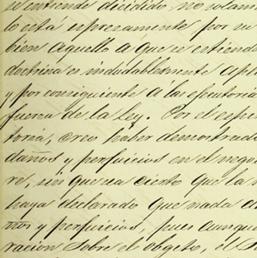 se entiende decidido no solam
lo está espresamente por su
bien aquello a que se estiende
doctrina es indudablemente apli
y por consiguiente a las ejecutoria
fuerza de la Ley. Por el espre
toria, creo haber demostrado
daños y perjuicios en el nego
re, sin que sea cierto que la
haya declarado que nada di
ños y perjuicios, pues aunque
racion sobre el obgeto, el